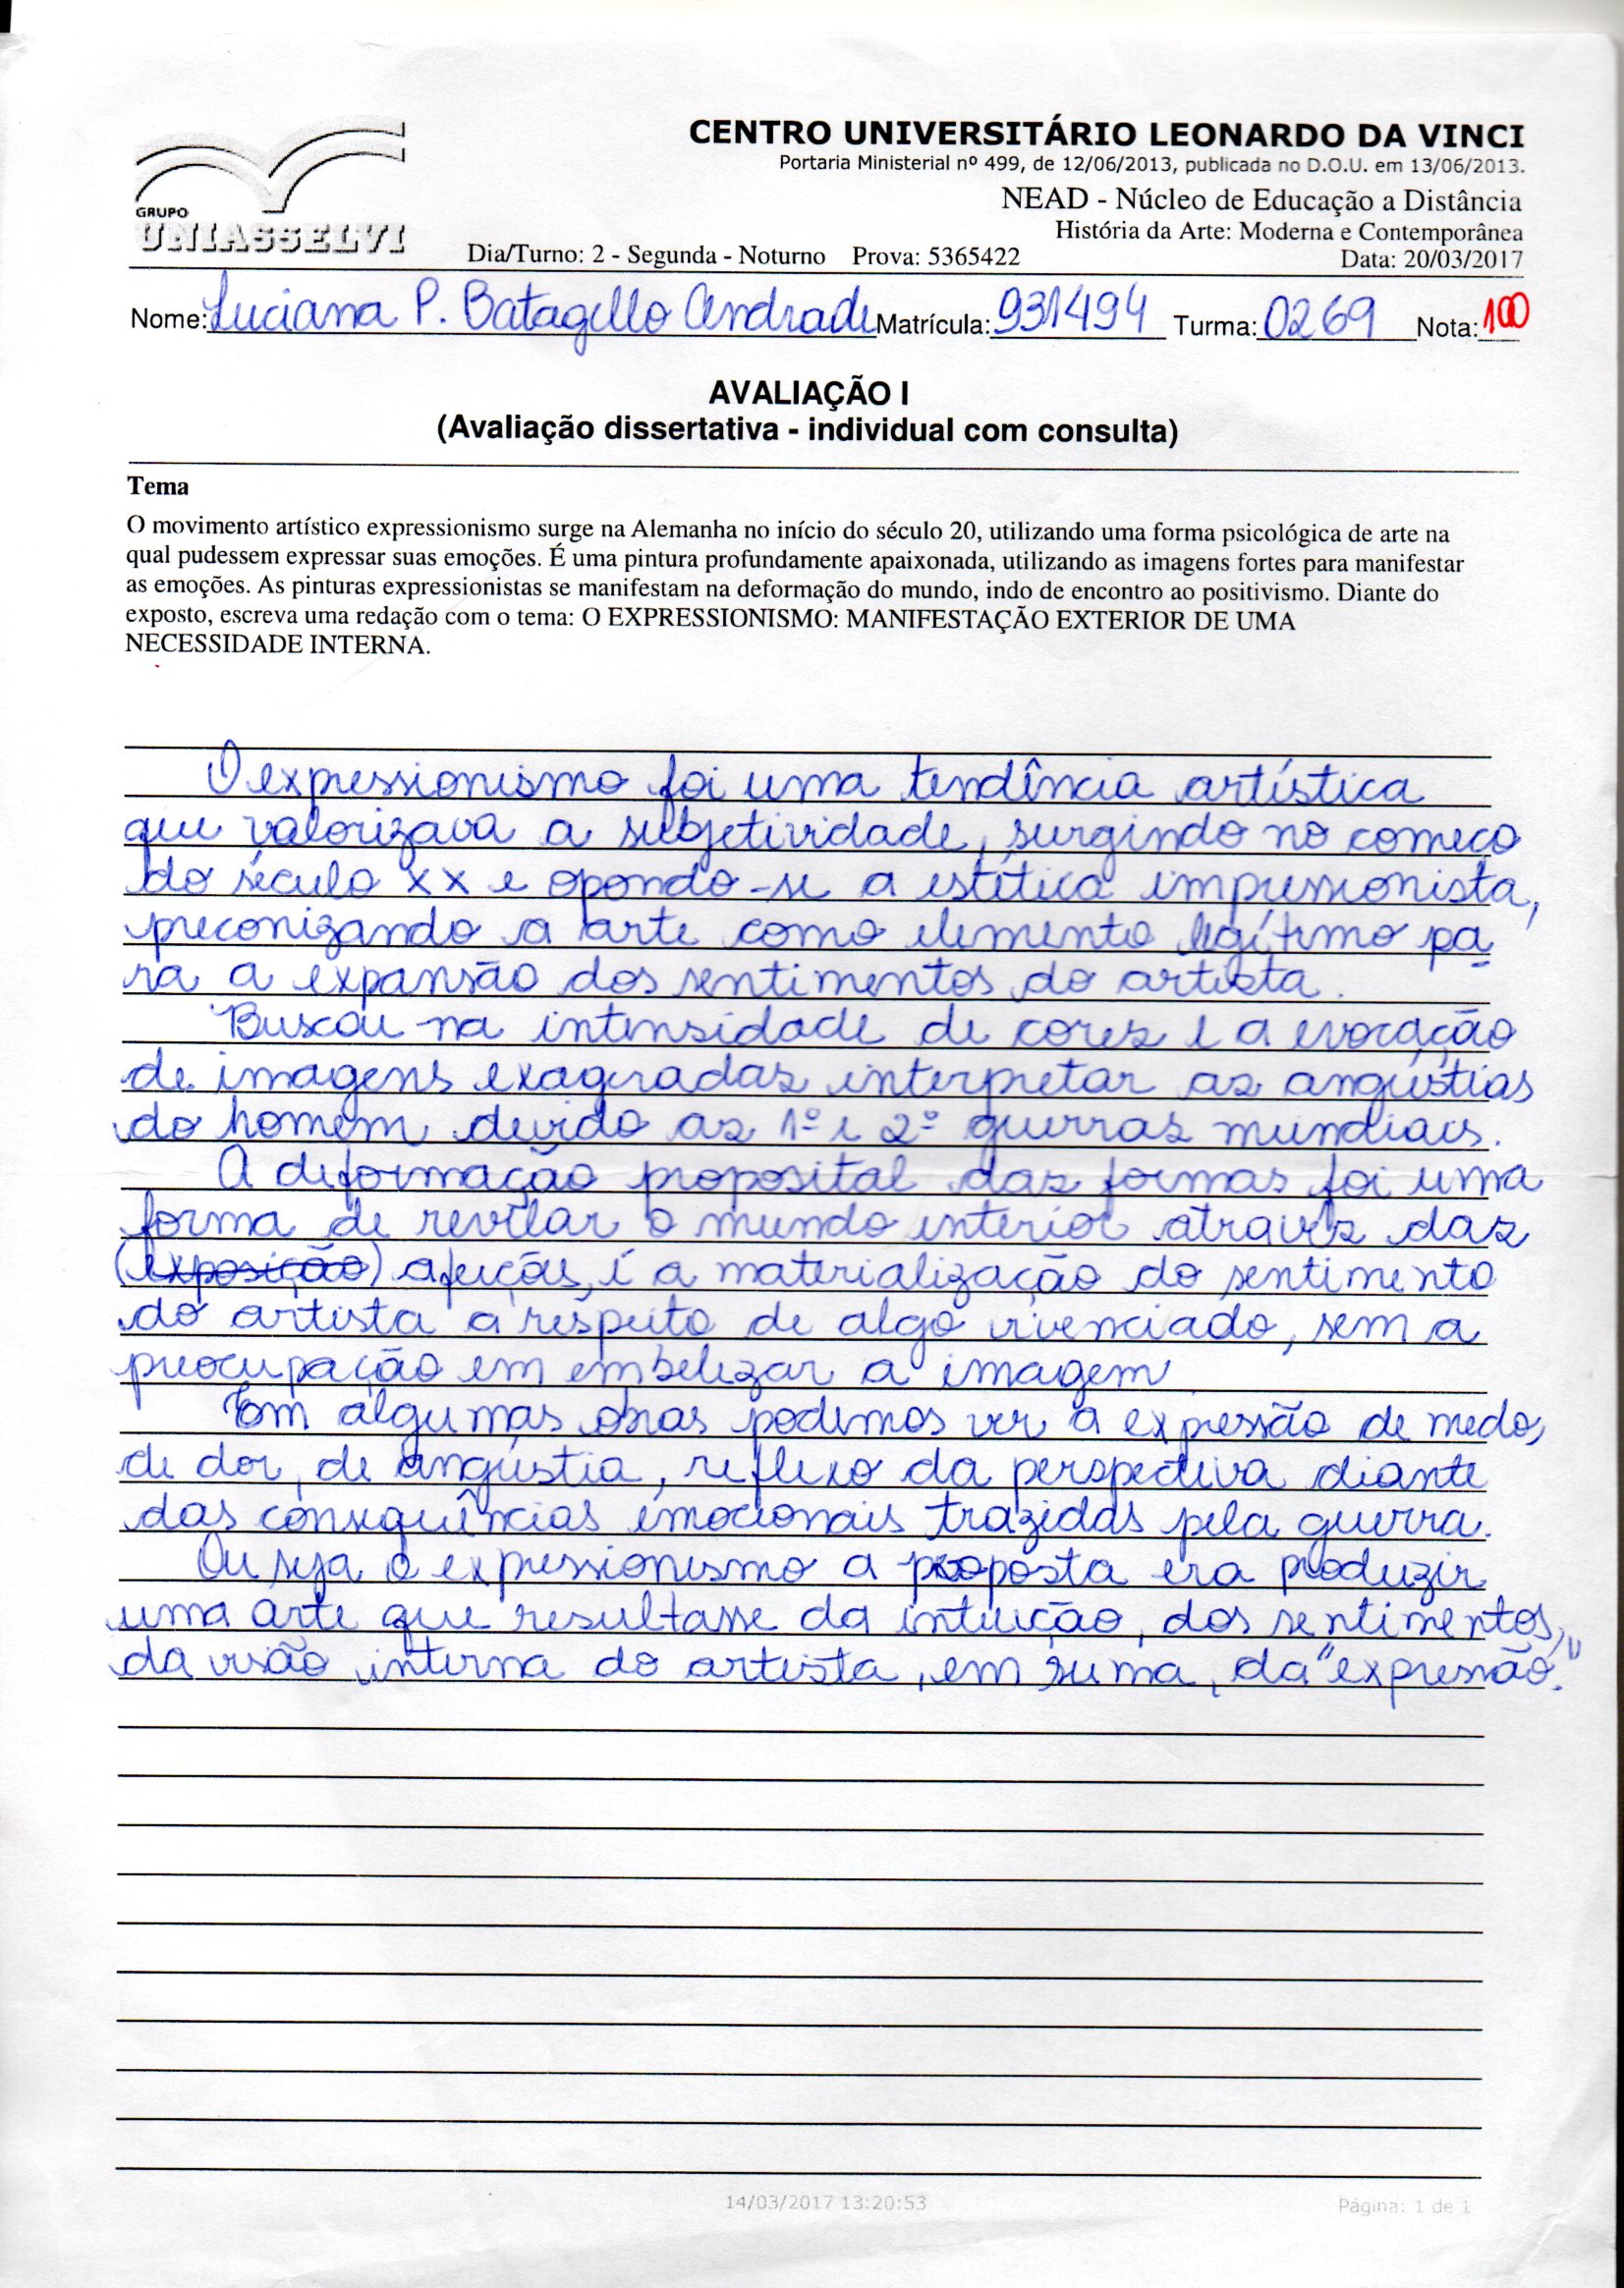 CENTRO UNIVERSITÁRIO LEONARDO DA VINCI
Portaria Ministerial nº 499, de 12/06/2013, publicada no D.O.U. em 13/06/2013.
NEAD - Núcleo de Educação a Distância
GRUPO
UNIASSELVI
História da Arte: Moderna e Contemporânea
Dia/Turno: 2 - Segunda - Noturno Prova: 5365422 Data: 20/03/2017
Nome: Luciana P. Batagello Andrade Matrícula: 931494 Turma: 0269 Nota: 100
AVALIAÇÃO I
(Avaliação dissertativa - individual com consulta)
Tema
O movimento artístico expressionismo surge na Alemanha no início do século 20, utilizando uma forma psicológica de arte na
qual pudessem expressar suas emoções. É uma pintura profundamente apaixonada, utilizando as imagens fortes para manifestar
as emoções. As pinturas expressionistas se manifestam na deformação do mundo, indo de encontro ao positivismo. Diante do
exposto, escreva uma redação com o tema: O EXPRESSIONISMO: MANIFESTAÇÃO EXTERIOR DE UMA
NECESSIDADE INTERNA.
O expressionismo foi uma tendência artística
que valorizava a subjetividade, surgindo no começo
do século XX e opondo-se a estética impressionista,
preconizando a arte como elemento legítimo pa-
ra a expansão dos sentimentos do artista.
Buscou na intensidade de cores e a evocação
de imagens exageradas interpretar as angústias
do homem devido as 1º e 2º guerras mundiais.
A deformação proposital das formas foi uma
forma de revelar o mundo interior através das
(exposição) afeições, é a materialização do sentimento
do artista a respeito de algo vivenciado, sem a
preocupação em embelezar a imagem.
Em algumas obras podemos ver a expressão de medo,
de dor, de angústia, reflexo da perspectiva diante
das consequências emocionais trazidas pela guerra.
Ou seja o expressionismo a proposta era produzir
uma arte que resultasse da intuição, dos sentimentos,
da visão interna do artista, em suma, da "expressão."
14/03/2017 13:20:53 Página: 1 de 1